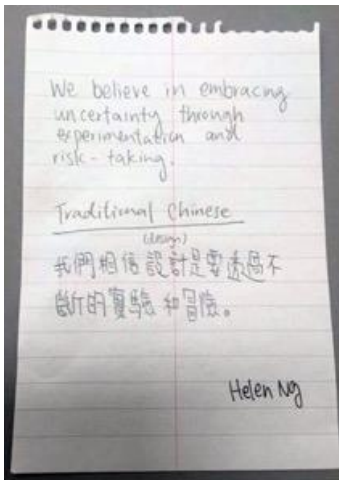 We believe in embracing
uncertainty through
experimentation and
risk-taking.
Traditional Chinese
(design)
我們相信設計是要透過不
斷的實驗和冒險。
Helen Ng